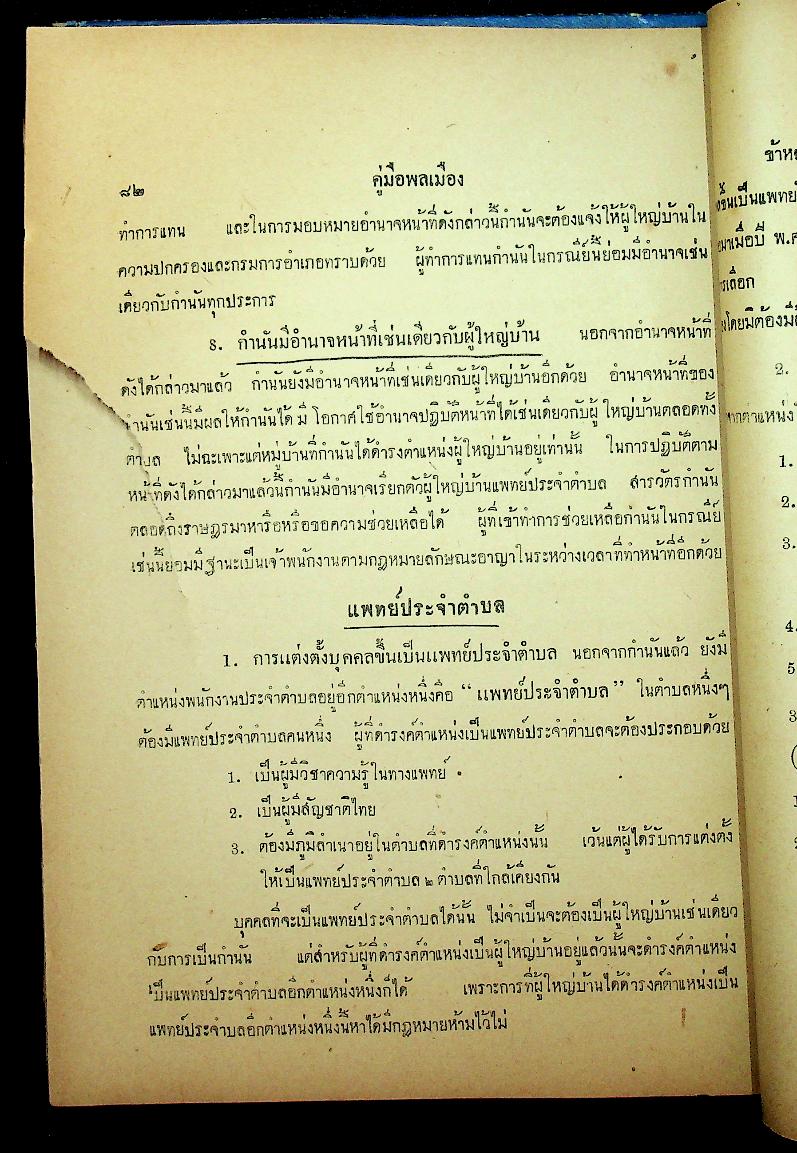 ๘๒
คู่มือพลเมือง
ทำการแทน และในการมอบหมายอำนาจหน้าที่ดังกล่าวนี้กำนันจะต้องแจ้งให้ผู้ใหญ่บ้านใน
ความปกครองและกรมการอำเภอทราบด้วย ผู้ทำการแทนกำนันในกรณีย์นี้ย่อมมีอำนาจเช่น
เดียวกับกำนันทุกประการ
กำนันมีอำนาจหน้าที่เช่นเดียวกับผู้ใหญ่บ้าน นอกจากอำนาจหน้าที่
ดังได้กล่าวมาแล้ว กำนันยังมีอำนาจหน้าที่เช่นเดียวกับผู้ใหญ่บ้านอีกด้วย อำนาจหน้าที่ของ
กำนันเช่นนี้มีผลให้กำนันได้ มี โอกาศใช้อำนาจปฏิบัติหน้าที่ได้เช่นเดียวกับผู้ ใหญ่บ้านตลอดทั้ง
ตำบล ไม่ฉะเพาะแต่หมู่บ้านที่กำนันได้ดำรงตำแหน่งผู้ใหญ่บ้านอยู่เท่านั้น ในการปฏิบัติตาม
หน้าที่ดังได้กล่าวมาแล้วนี้กำนันมีอำนาจเรียกตัวผู้ใหญ่บ้านแพทย์ประจำตำบล สารวัตรกำนัน
ตลอดถึงราษฎรมาหารือหรือขอความช่วยเหลือได้ ผู้ที่เข้าทำการช่วยเหลือกำนันในกรณีย์
เช่นนี้ย่อมมีฐานะเป็นเจ้าพนักงานตามกฎหมายลักษณะอาญาในระหว่างเวลาที่ทำหน้าที่อีกด้วย
แพทย์ประจำตำบล
1. การแต่งตั้งบุคคลขึ้นเป็นแพทย์ประจำตำบล นอกจากกำนันแล้ว ยังมี
ตำแหน่งพนักงานประจำตำบลอยู่อีกตำแหน่งหนึ่งคือ “ แพทย์ประจำตำบล ” ในตำบลหนึ่งๆ
ต้องมีแพทย์ประจำตำบลคนหนึ่ง ผู้ที่ดำรงค์ตำแหน่งเป็นแพทย์ประจำตำบลจะต้องประกอบด้วย
1. เป็นผู้มีวิชาความรู้ในทางแพทย์
2. เป็นผู้มีสัญชาติไทย
3. ต้องมีภูมิลำเนาอยู่ในตำบลที่ดำรงค์ตำแหน่งนั้น เว้นแต่ผู้ได้รับการแต่งตั้ง
ให้เป็นแพทย์ประจำตำบล ๒ ตำบลที่ใกล้เคียงกัน
บุคคลที่จะเป็นแพทย์ประจำตำบลได้นั้น ไม่จำเป็นจะต้องเป็นผู้ใหญ่บ้านเช่นเดียว
กับการเป็นกำนัน แต่สำหรับผู้ที่ดำรงค์ตำแหน่งเป็นผู้ใหญ่บ้านอยู่แล้วนั้นจะดำรงค์ตำแหน่ง
เป็นแพทย์ประจำตำบลอีกตำแหน่งหนึ่งก็ได้ เพราะการที่ผู้ใหญ่บ้านได้ดำรงค์ตำแหน่งเป็น
แพทย์ประจำบลอีกตำแหน่งหนึ่งนี้หาได้มีกฎหมายห้ามไว้ไม่